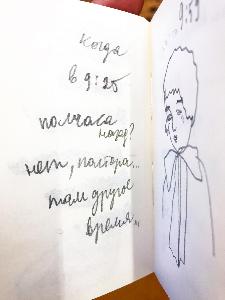 когда
в 9:25
полчаса
назад?
нет, полтора...
там другое
время...
9:59